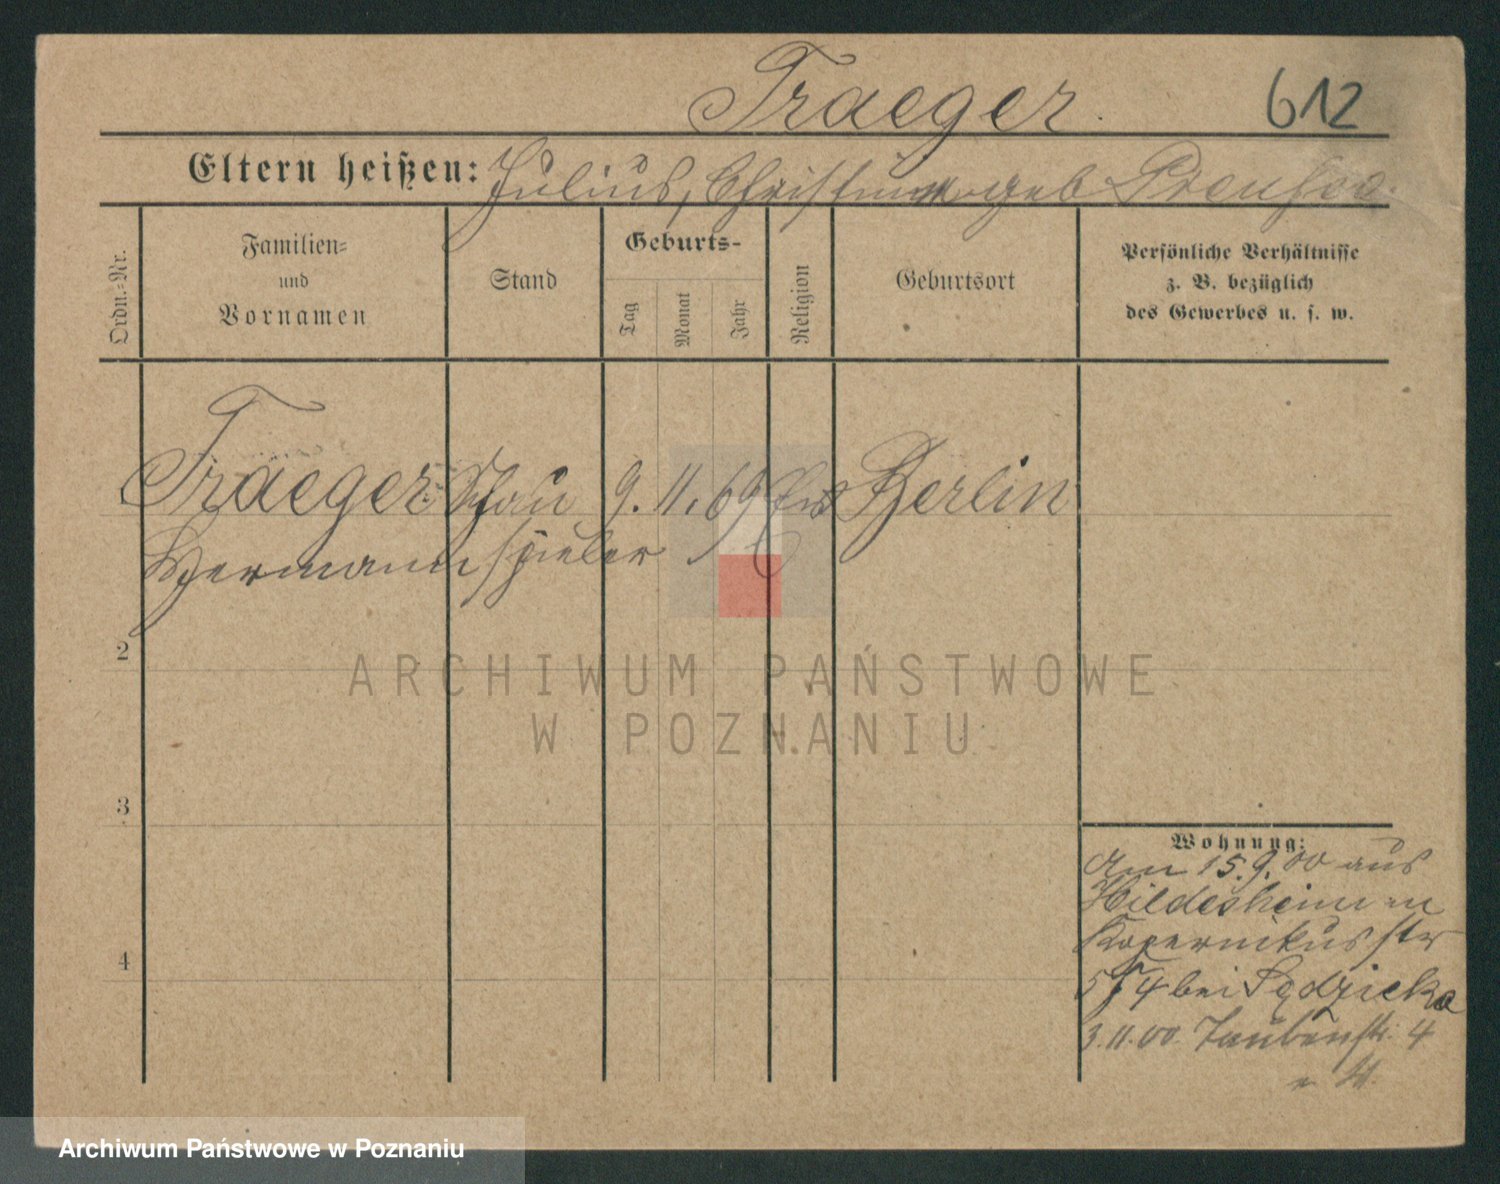 Traeger. 612
Eltern heißen: Julius, Christine geb
Ordn.=Nr.
Familien=
und
Vornamen
Stand
Geburts-
Tag
Monat
Jahr
Religion
Geburtsort
Persönliche Verhältnisse
z. B. bezüglich
des Gewerbes u. s. w.
1 Traeger Schau 9. 11. 69 Berlin
Hermann spieler
2
ARCHIWUM PAŃSTWOWE
W POZNANIU
3
Wohnung:
Am 15.9.00 aus
Hildesheim in
Kopernikusstr
5 bei Sędzicka
4
3.11.00. Taubenstr. 4
Archiwum Państwowe w Poznaniu